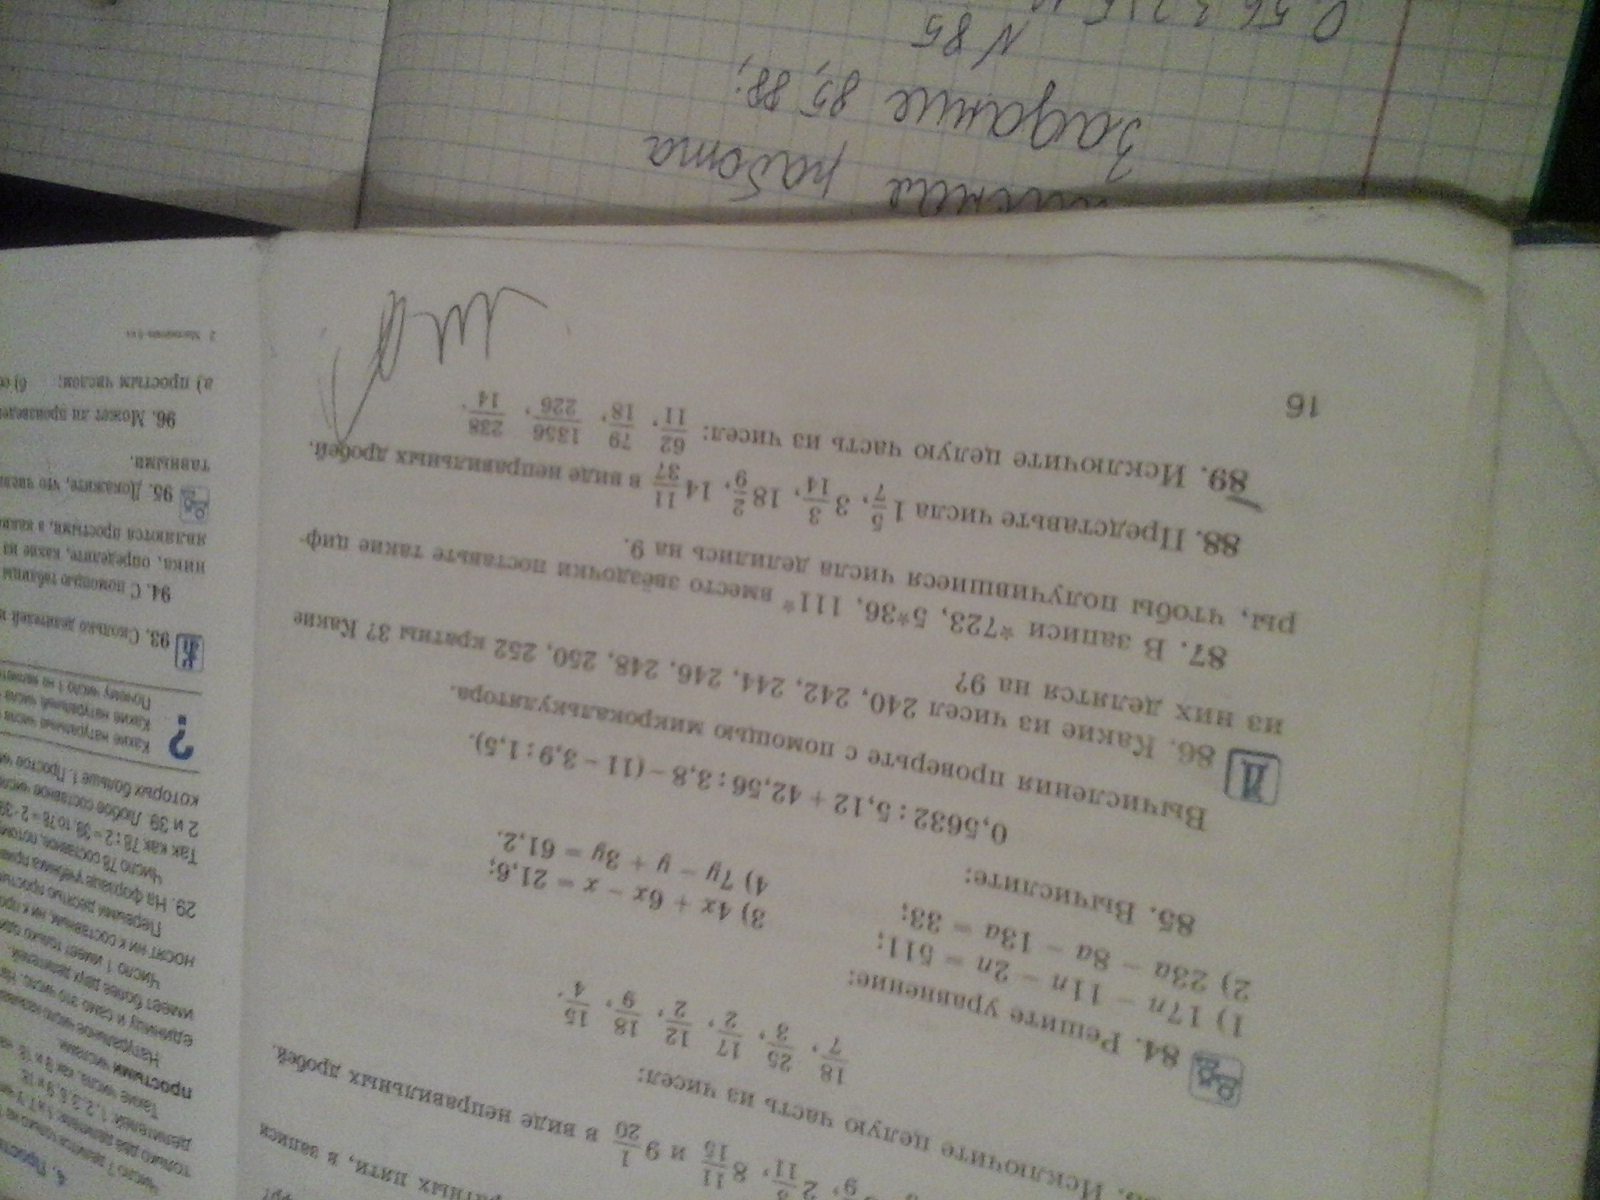 работа
Задание 85, 88;
N 85
2 11, 8 11/15 и 9 1/20 в виде неправильных дробей.
Исключите целую часть из чисел:
18/7, 25/3, 17/2, 12/2, 18/9, 15/4.
84. Решите уравнение:
1) 17n − 11n − 2n = 511;
2) 23a − 8a − 13a = 33;
3) 4x + 6x − x = 21,6;
4) 7y − y + 3y = 61,2.
85. Вычислите:
0,5632 : 5,12 + 42,56 : 3,8 − (11 − 3,9 : 1,5).
Вычисления проверьте с помощью микрокалькулятора.
П 86. Какие из чисел 240, 242, 244, 246, 248, 250, 252 кратны 3? Какие
из них делятся на 9?
87. В записи *723, 5*36, 111* вместо звёздочки поставьте такие циф-
ры, чтобы получившиеся числа делились на 9.
88. Представьте числа 1 5/7, 3 3/14, 18 2/9, 14 11/37 в виде неправильных дробей.
89. Исключите целую часть из чисел: 62/11, 79/18, 1356/226, 238/14.
16
Число 7 делится только на
только два делителя: 1 и 7. У
делителей: 1, 2, 3, 6, 9 и 18.
Такие числа, как 9 и 18, на
простыми числами.
Натуральное число назыв
единицу и само это число. На
имеет более двух делителей.
Число 1 имеет только оди
носят ни к составным, ни к про
Первыми десятью просты
29. На форзаце учебника прив
Число 78 составное, потом
Так как 78 : 2 = 39, то 78 = 2 · 39
2 и 39. Любое составное числ
которых больше 1. Простое чи
? Какие натуральные числа
Какие натуральные числа
Почему число 1 не являет
93. Сколько делителей и
94. С помощью таблицы
ника, определите, какие из
являются простыми, а каки
95. Докажите, что числа
тавными.
96. Может ли произвед
а) простым числом; б) со